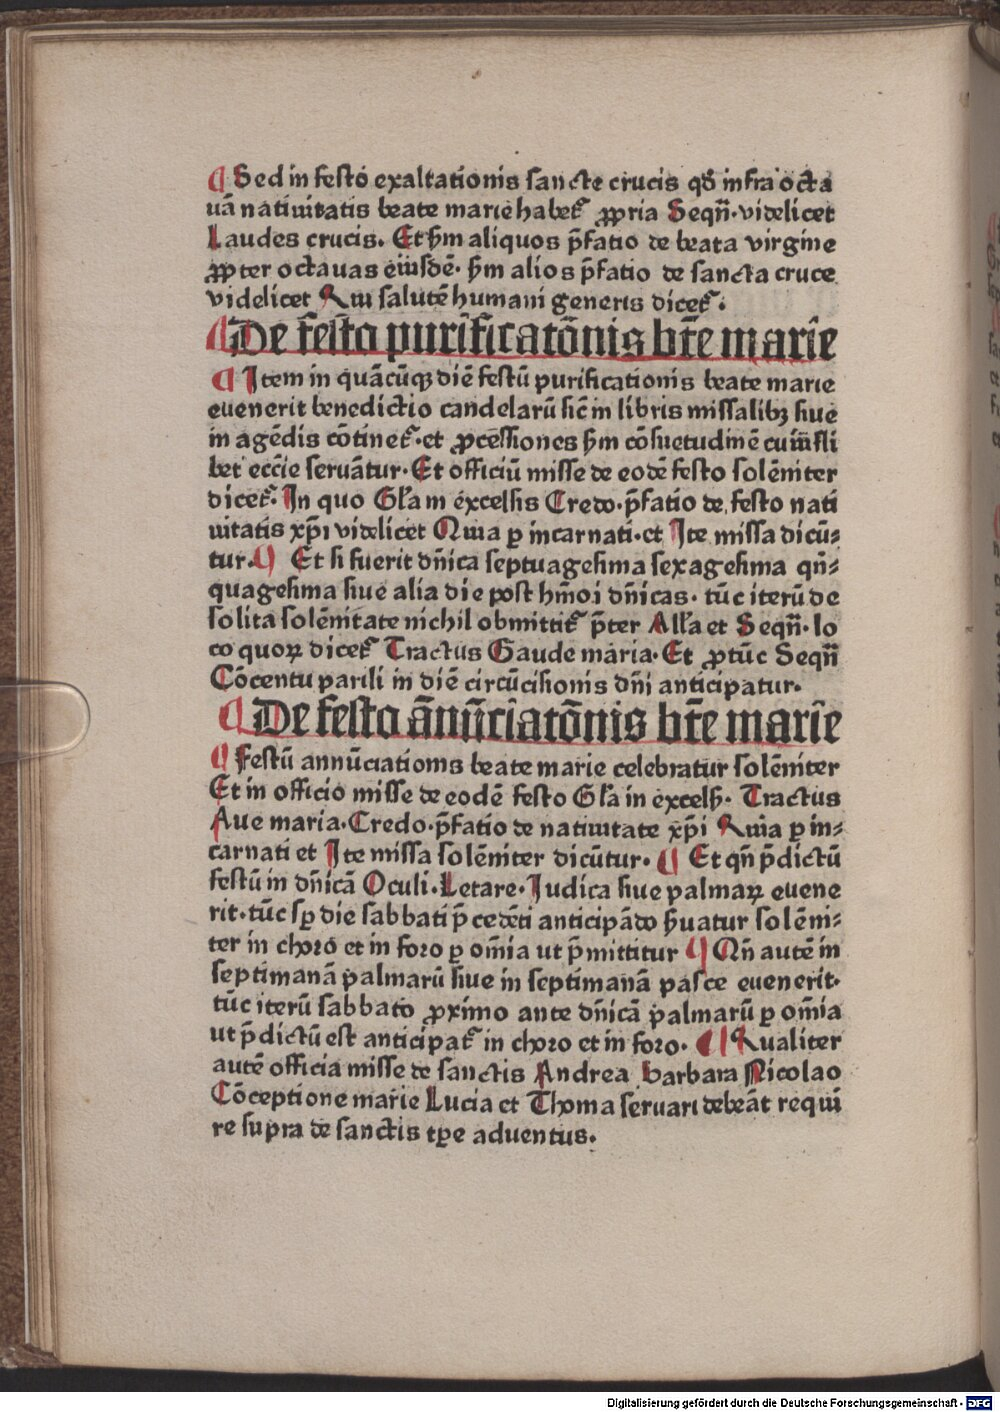 ¶ Sed in festo exaltationis sancte crucis qď infra octa
uā natiuitatis beate marie habet᷑ ꝓpria Seqn̄·videlicet
Laudes crucis. Et ẜm aliquos p̄fatio de beata virgine
ꝓpter octauas eiusdē· ẜm alios p̄fatio de sancta cruce
videlicet Qui salutē humani generis dicet᷑.
¶ De festo purificatōnis bt̄e marie
¶ Item in quācūqꝫ diē festū purificationis beate marie
euenerit benedictio candelarū sic̄ in libris missalibꝫ siue
in agēdis cōtinet᷑·et ꝓcessiones ẜm cōsuetudinē cuiusli
bet ecc̄ie seruātur· Et officiū misse de eodē festo solēniter
dicet᷑. In quo Gl̄a in excelsis Credo·p̄fatio de festo nati
uitatis xp̄i videlicet Quia ꝑ incarnati·et Ite missa dicū⸗
tur. ¶ Et si fuerit dn̄ica septuagesima sexagesima qn̄⸗
quagesima siue alia die post hm̄oi dn̄icas· tūc iterū de
solita solēnitate nichil obmittit᷑ p̄ter All̄a et Seqn̄· lo
co quoꝝ dicet᷑ Tractus Gaude maria· Et ꝓtūc Seqn̄
Cōcentu parili in diē circūcisionis dn̄i anticipatur.
¶ De festo ānūciatōnis bt̄e marie
¶ Festū annūciationis beate marie celebratur solēniter
Et in officio misse de eodē festo Gl̄a in excelẜ. Tractus
Aue maria·Credo·p̄fatio de natiuitate xp̄i Quia ꝑ in⸗
carnati et Ite missa solēniter dicūtur. ¶ Et qn̄ p̄dictū
festū in dn̄icā Oculi·Letare·Iudica siue palmaꝝ euene
rit·tūc sꝑ die sabbati p̄cedēti anticipādo ẜuatur solēni⸗
ter in choro et in foro ꝑ om̄ia ut p̄mittitur ¶ Qn̄ autē in
septimanā palmarū siue in septimanā pasce euenerit·
tūc iterū sabbato ꝓximo ante dn̄icā palmarū ꝑ om̄ia
ut p̄dictū est anticipat᷑ in choro et in foro. ¶ Qualiter
autē officia misse de sanctis Andrea Barbara Nicolao
Cōceptione marie Lucia et Thoma seruari debeāt requi
re supra de sanctis tꝑe aduentus.
Digitalisierung gefördert durch die Deutsche Forschungsgemeinschaft - DFG